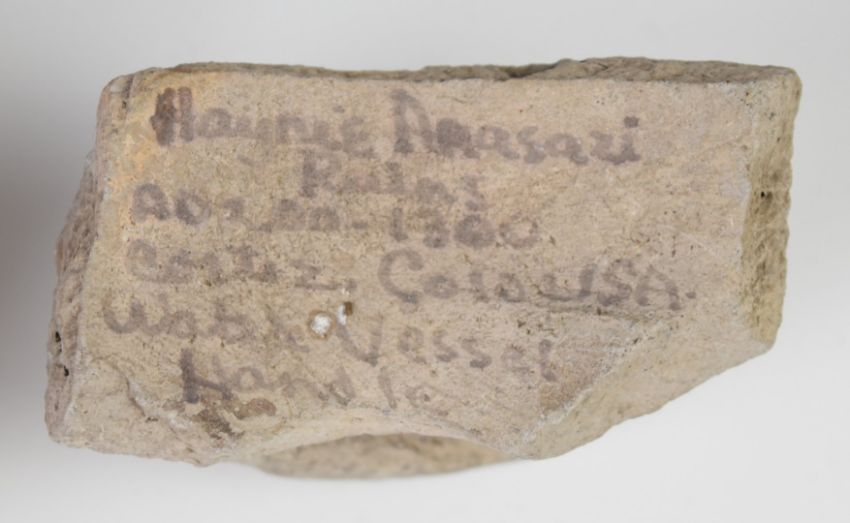 Haynie Anasazi
Ruins
AD -1300
Cortez, Colo USA.
Water Vessel
Handle